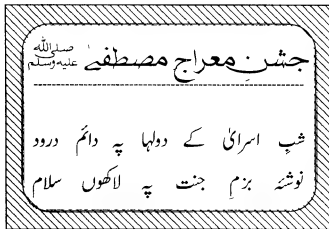 جشنِ معراج مصطفےٰ صلی اللہ علیہ وسلم
شبِ اسرایٰ کے دولہا پہ دائم درود
نوشۂ بزمِ جنت پہ لاکھوں سلام